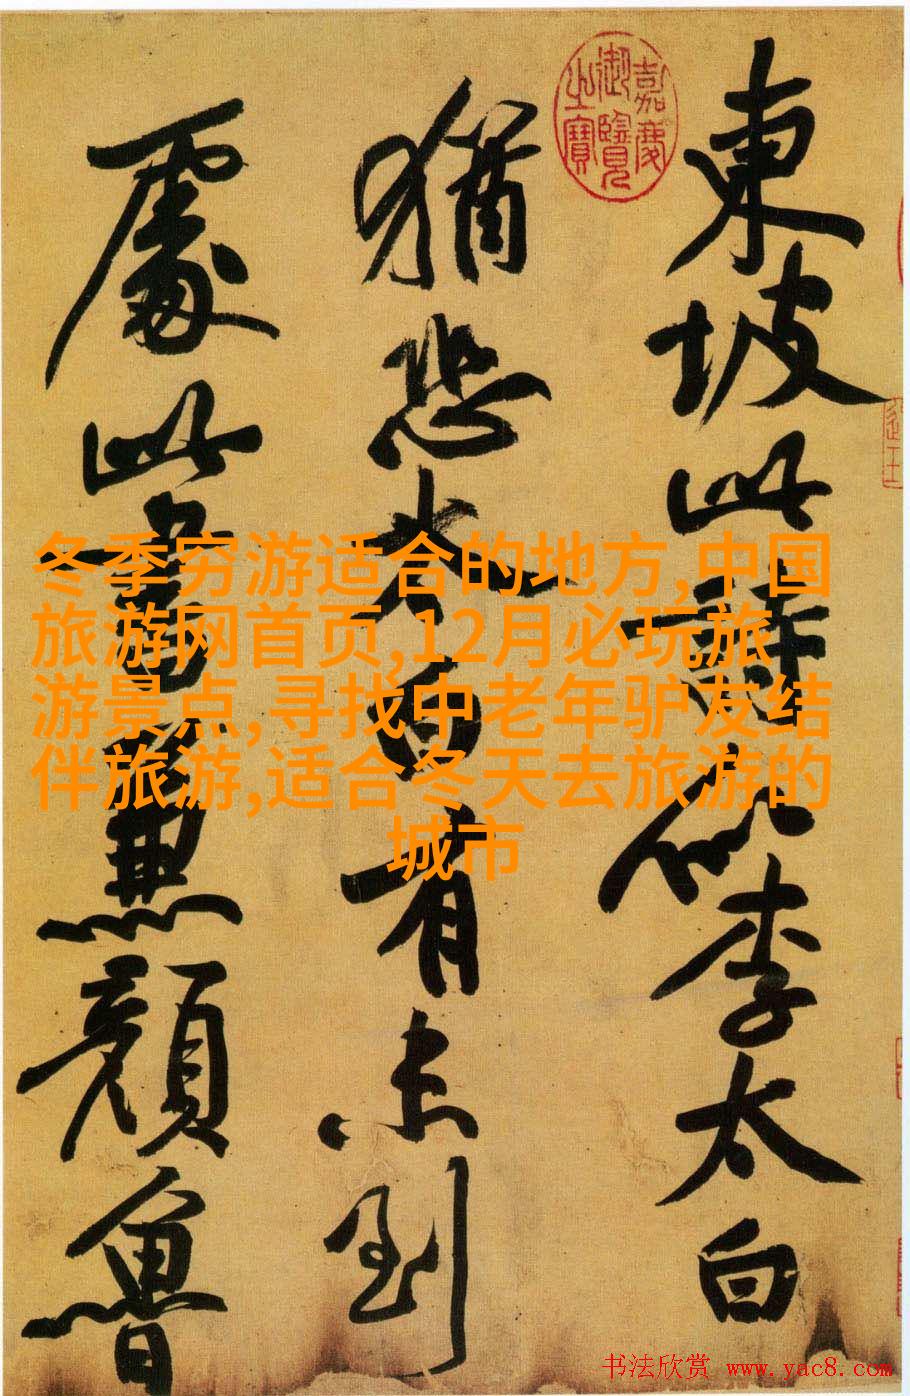 東坡此詩似李太白
猶恐太白有未到
處此書兼顏魯
嘉慶
御覽
之寶
冬季穷游适合的地方,中国
旅游网首页,12月必玩旅
游景点,寻找中老年驴友结
伴旅游,适合冬天去旅游的
城市
书法欣赏 www.yac8.com